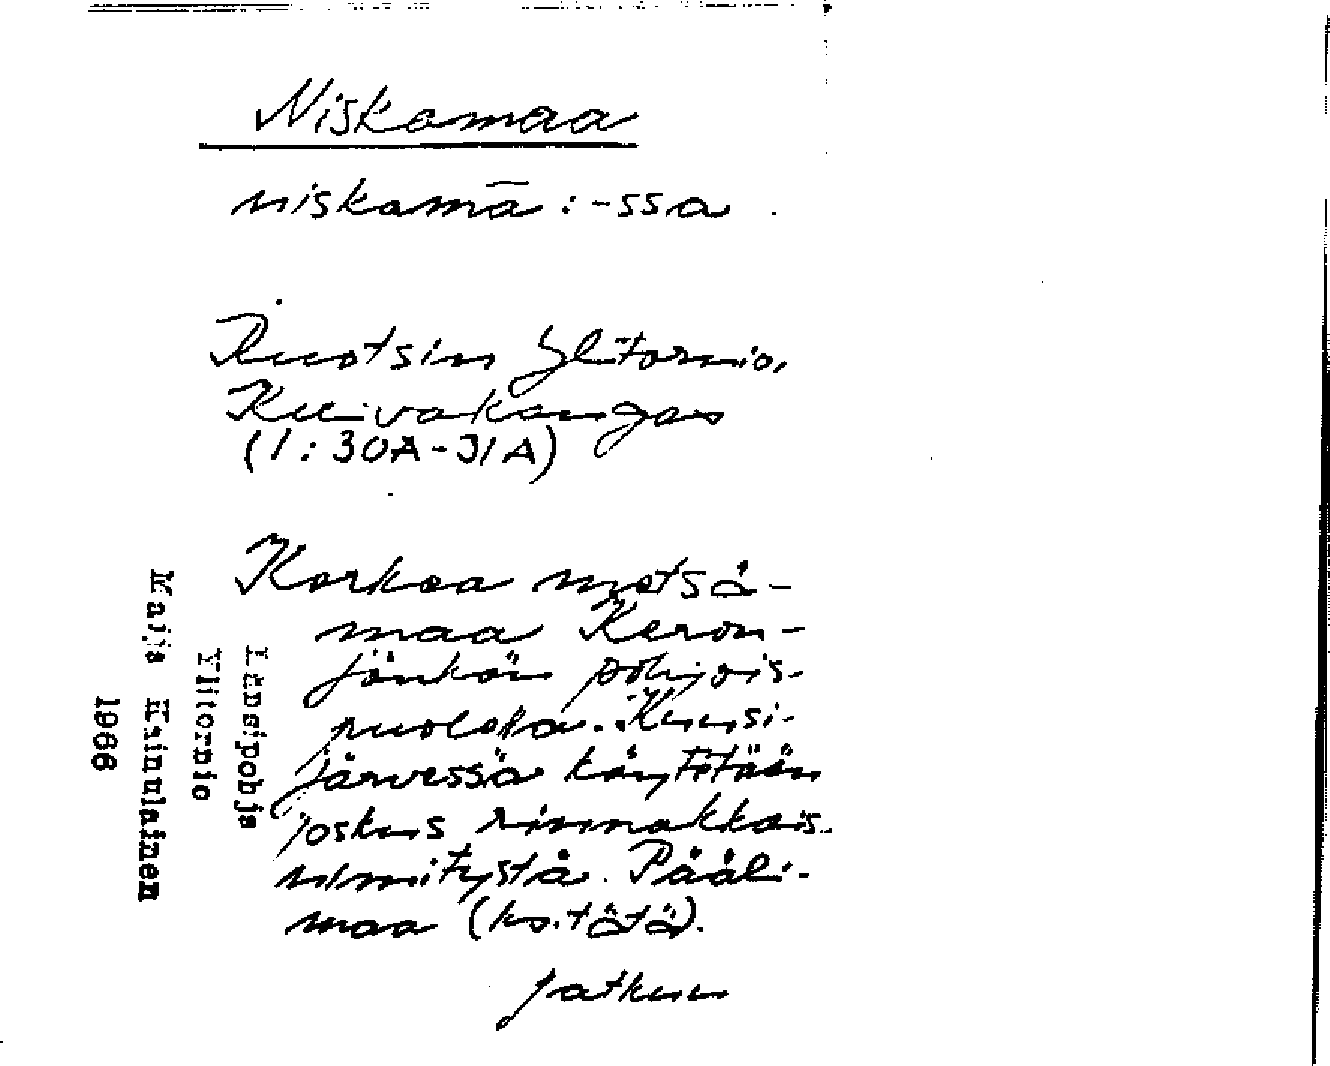 Niskamaa
niskamā : -ssa
Ruotsin Ylitornio,
Kuivakangas
(1 : 30A-31A)
Korkea metsä-
maa Keron-
jänkän pohjois-
puolella. Kuusi-
järvessä käytetään
joskus rinnakkais-
nimitystä Pääli-
maa (ks. tätä).
Jatkuu
Länsipohja
Ylitornio
Maija Kainulainen
1966